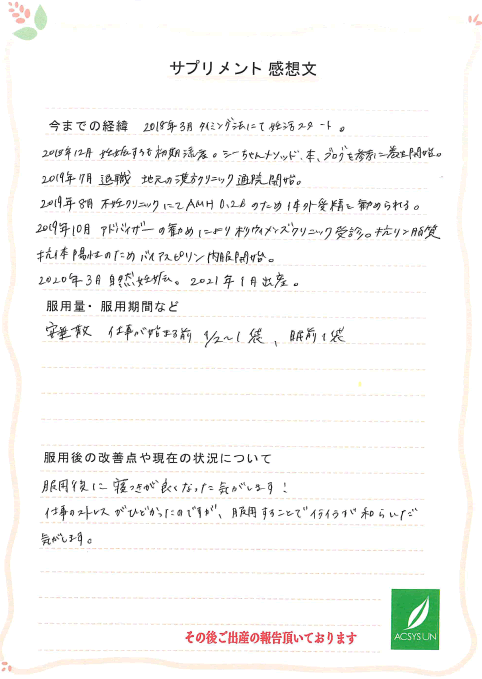 サプリメント 感想文
今までの経緯 2018年3月 タイミング法にて妊活スタート。
2018年12月 妊娠するも初期流産。シーちゃんメソッド、本、ブログを参考に養生開始。
2019年7月 退職 地元の漢方クリニック通院開始。
2019年8月 不妊クリニックにてAMH 0.26のため体外受精を勧められる。
2019年10月 アドバイザーの勧めにより杉ウィメンズクリニック受診。抗リン脂質
抗体陽性のためバイアスピリン内服開始。
2020年3月 自然妊娠。2021年1月出産。
服用量・服用期間など
安重散 仕事が始まる前 1/2～1袋、眠前1袋
服用後の改善点や現在の状況について
服用後に寝つきが良くなった気がします!
仕事のストレスがひどかったのですが、服用することでイライラが和らいだ
気がします。
その後ご出産の報告頂いております
ACSYSUN